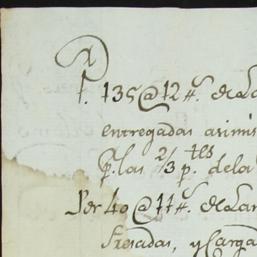 P. 135@12 #s. de La
entregadas asimis
P. las 2/3 ptes. de la
Per 40@11 #s. de Lan
fresadas, y Carga